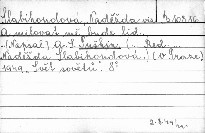 Slabihoudová, Naděžda viz B 10816
A milovat mě bude lid..
(Napsal) A.S. Puškin (.. Red...
Naděžda Slabihoudová.) (V Praze)
1949. Svět sovětů. 8°